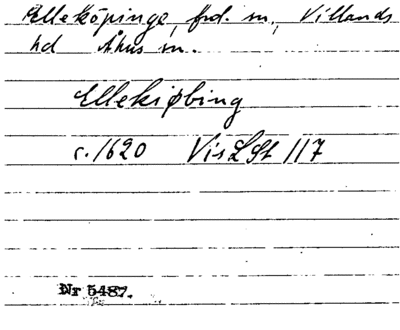 Elleköpinge, frd. sn., Villands
hd Åhus sn.
Ellekiøbing
c. 1620 VisLSt 117
Nr 5487.